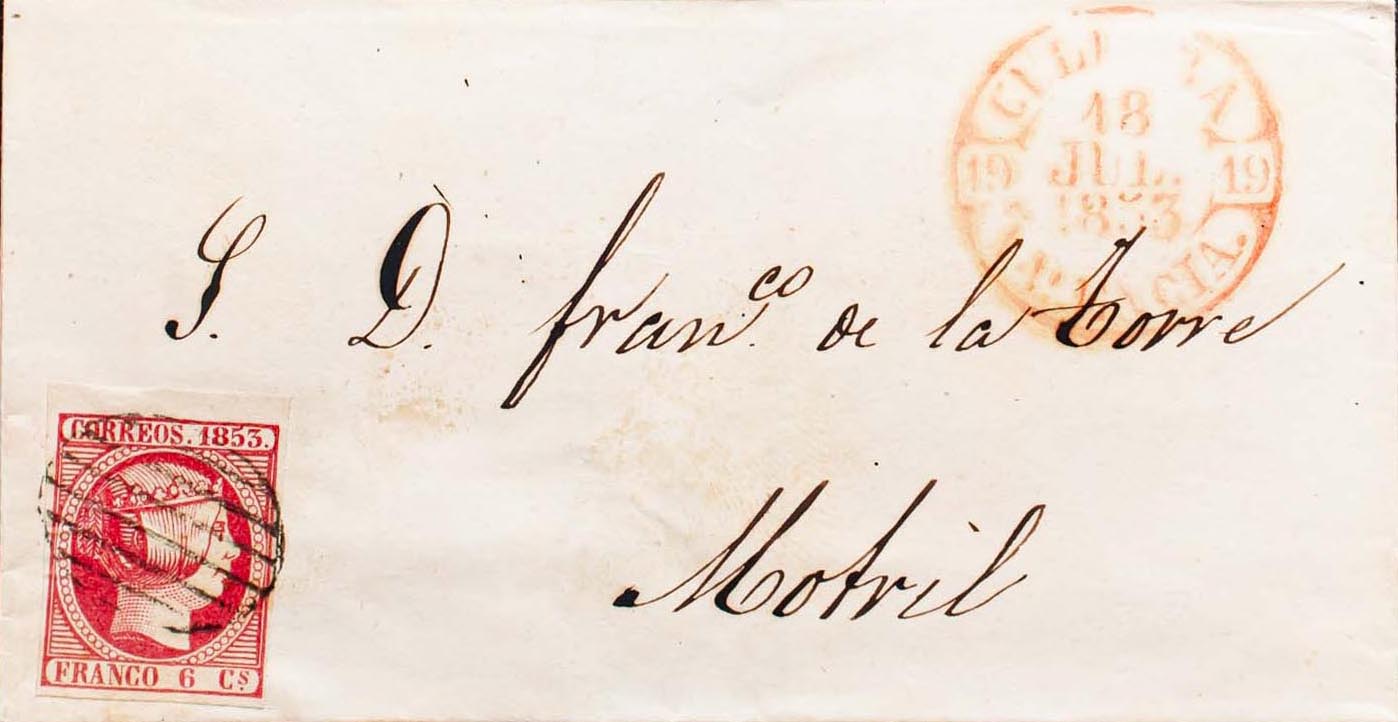 18
JUL.
1853
19 19
S. D. fran.co de la Torre
Motril
CORREOS. 1853.
FRANCO 6 Cs